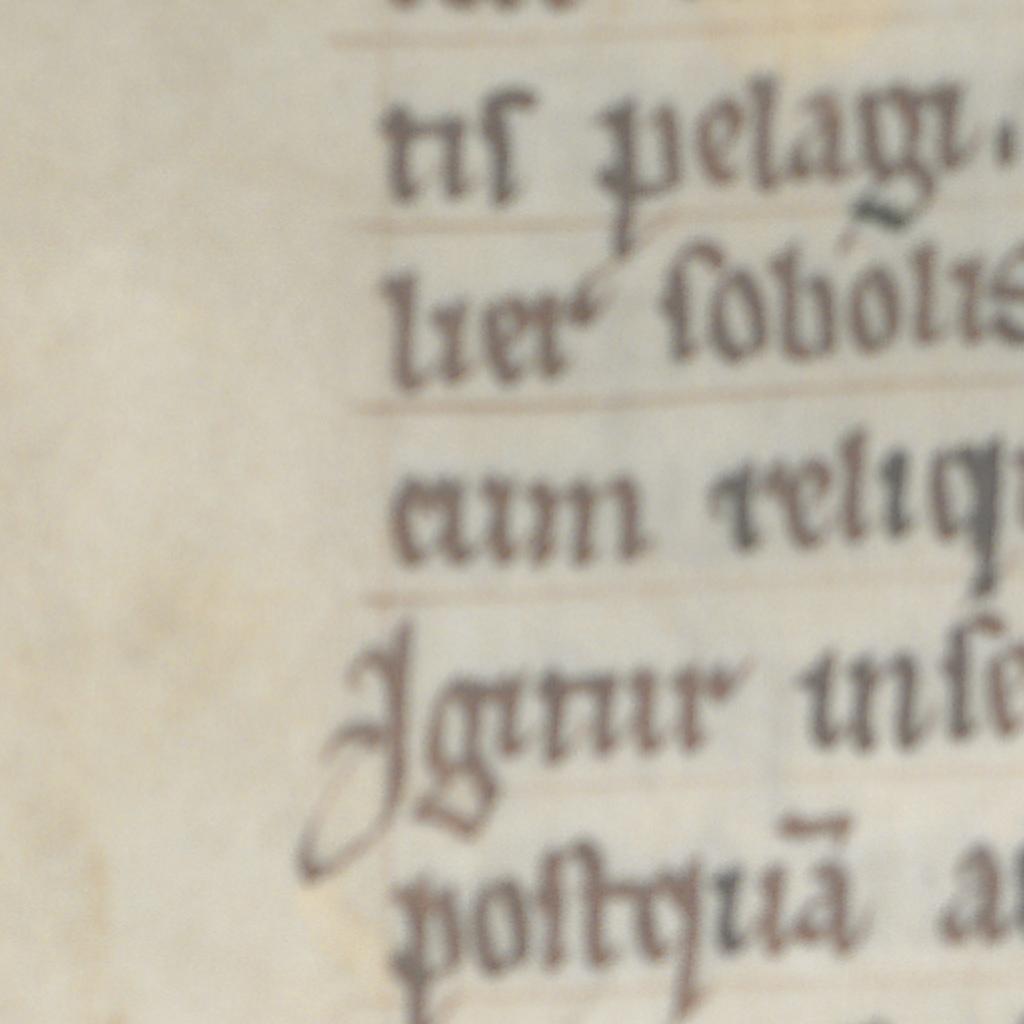 tiſ pelagi.
lier ſobolis
cum reliqu
Igitur inſe
poſtquā au